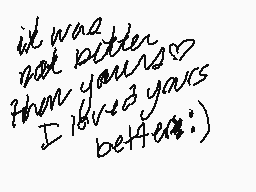 it was
not bitter
then yours♡
I loved yours
better:)